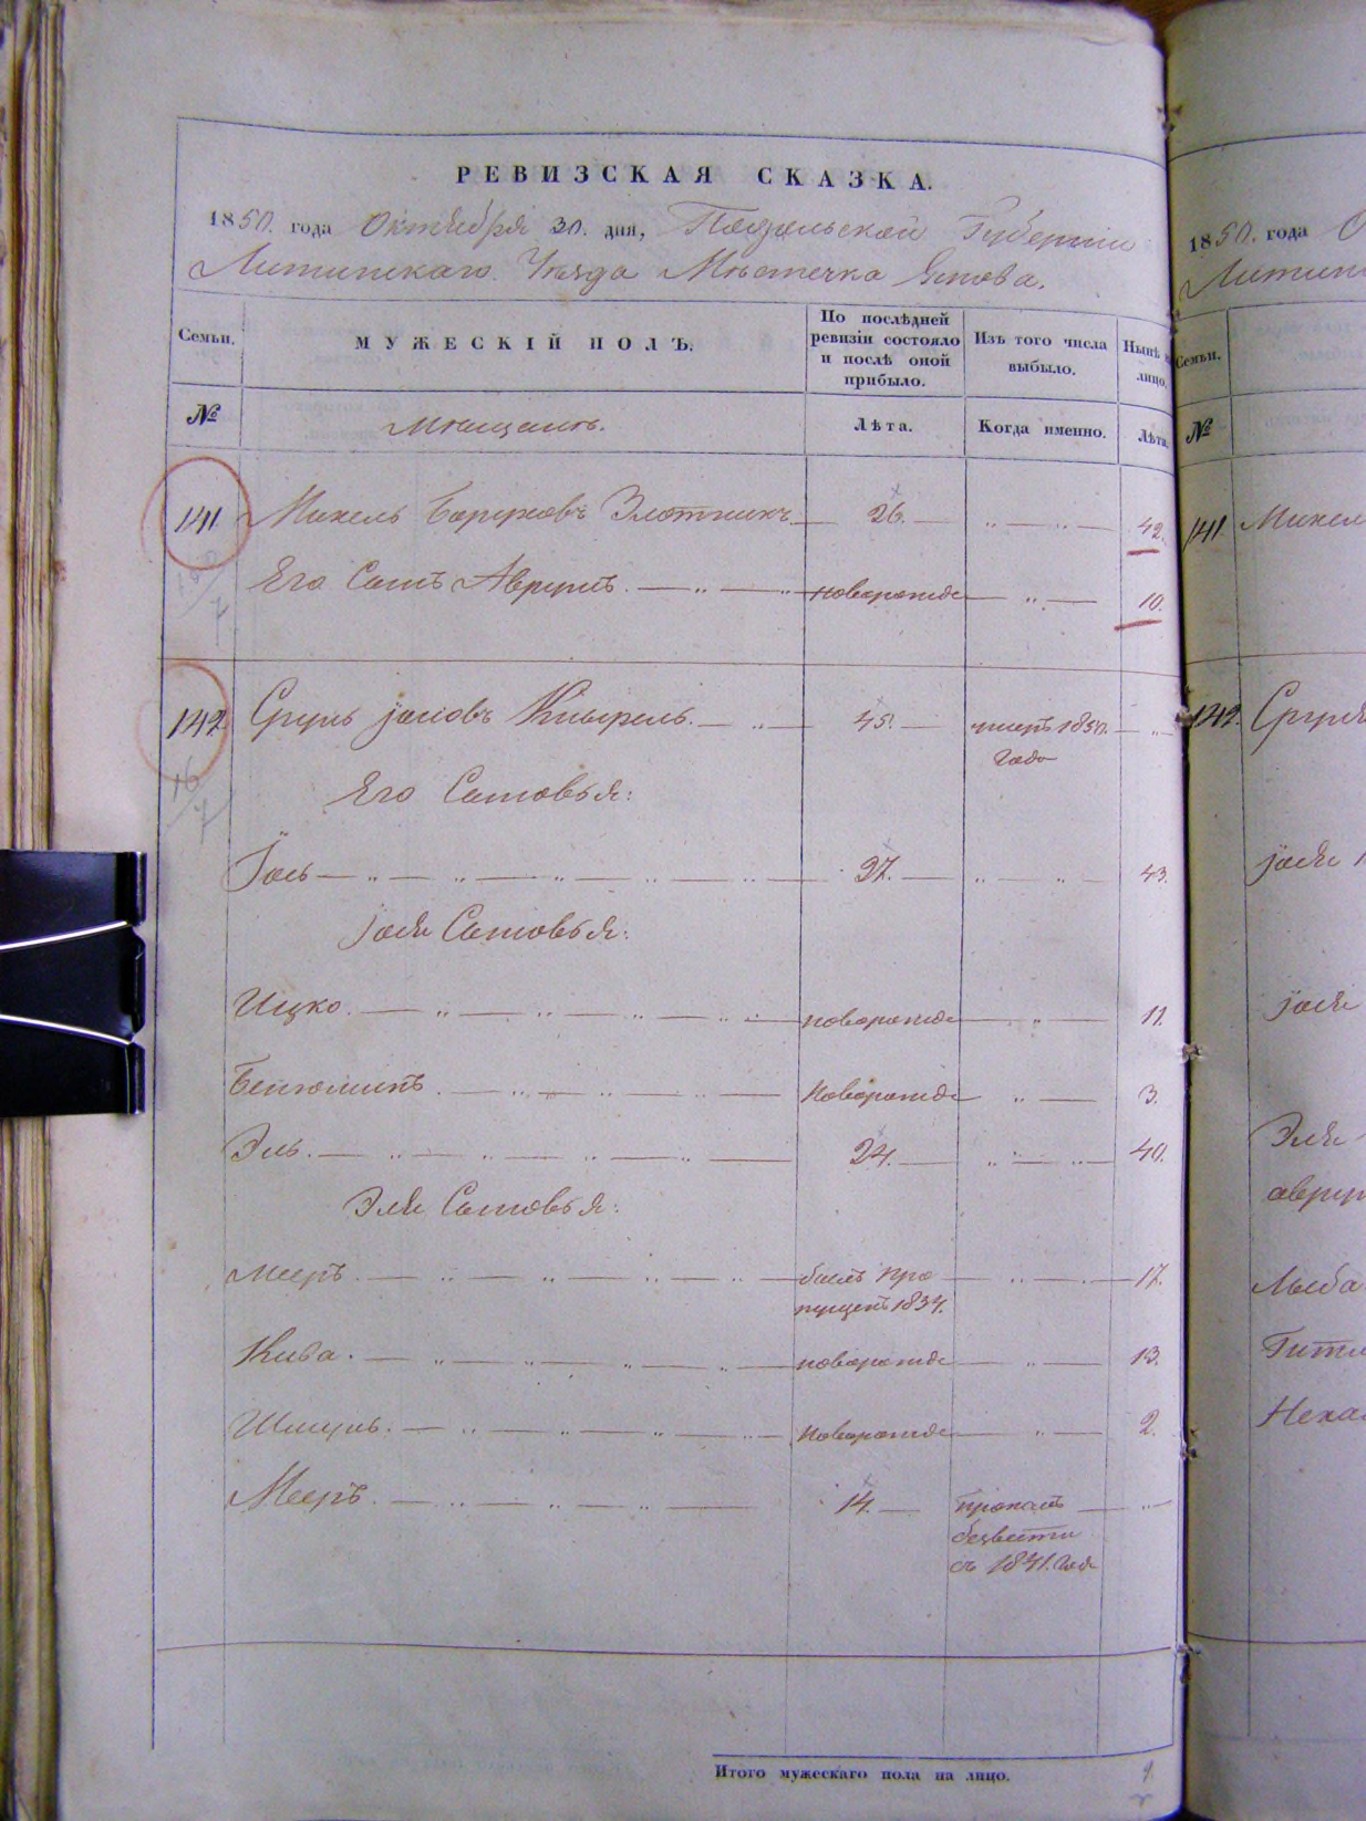 РЕВИЗСКАЯ СКАЗКА.
1850. года Октября 30. дня, Подольской Губернии
Литинскаго Уѣзда Мѣстечка Янова.
Семьи.
МУЖЕСКІЙ ПОЛЪ.
По послѣдней ревизіи состояло и послѣ оной прибыло.
Изъ того числа выбыло.
Нынѣ на лицо.
№
Мѣщанъ.
Лѣта.
Когда именно.
Лѣта.
141 Михель Боруховъ Злотникъ 26. 42.
Его Сынъ Аврумъ. новорожде 10.
142. Сруль Іосіовъ 45. умеръ 1850. года
Его Сыновья:
Іось 27. 43.
Іося Сыновья:
Ицко. новорожде 11.
Бенюминъ новорожде 3.
Эль. 24. 40.
Эля Сыновья:
Мееръ. былъ про 17.
пущенъ 1834.
Кива. новорожде 13.
Шмуль. новорожде 2.
Мееръ. 14. пропалъ
безвѣсти
съ 1841. года
Итого мужескаго пола на лицо. 9.
1850. года О
Литин
Семьи.
№
141. Михел
142. Сруля
Іося
Іося
Эля
аврум
Лыба
Гитл
Неха